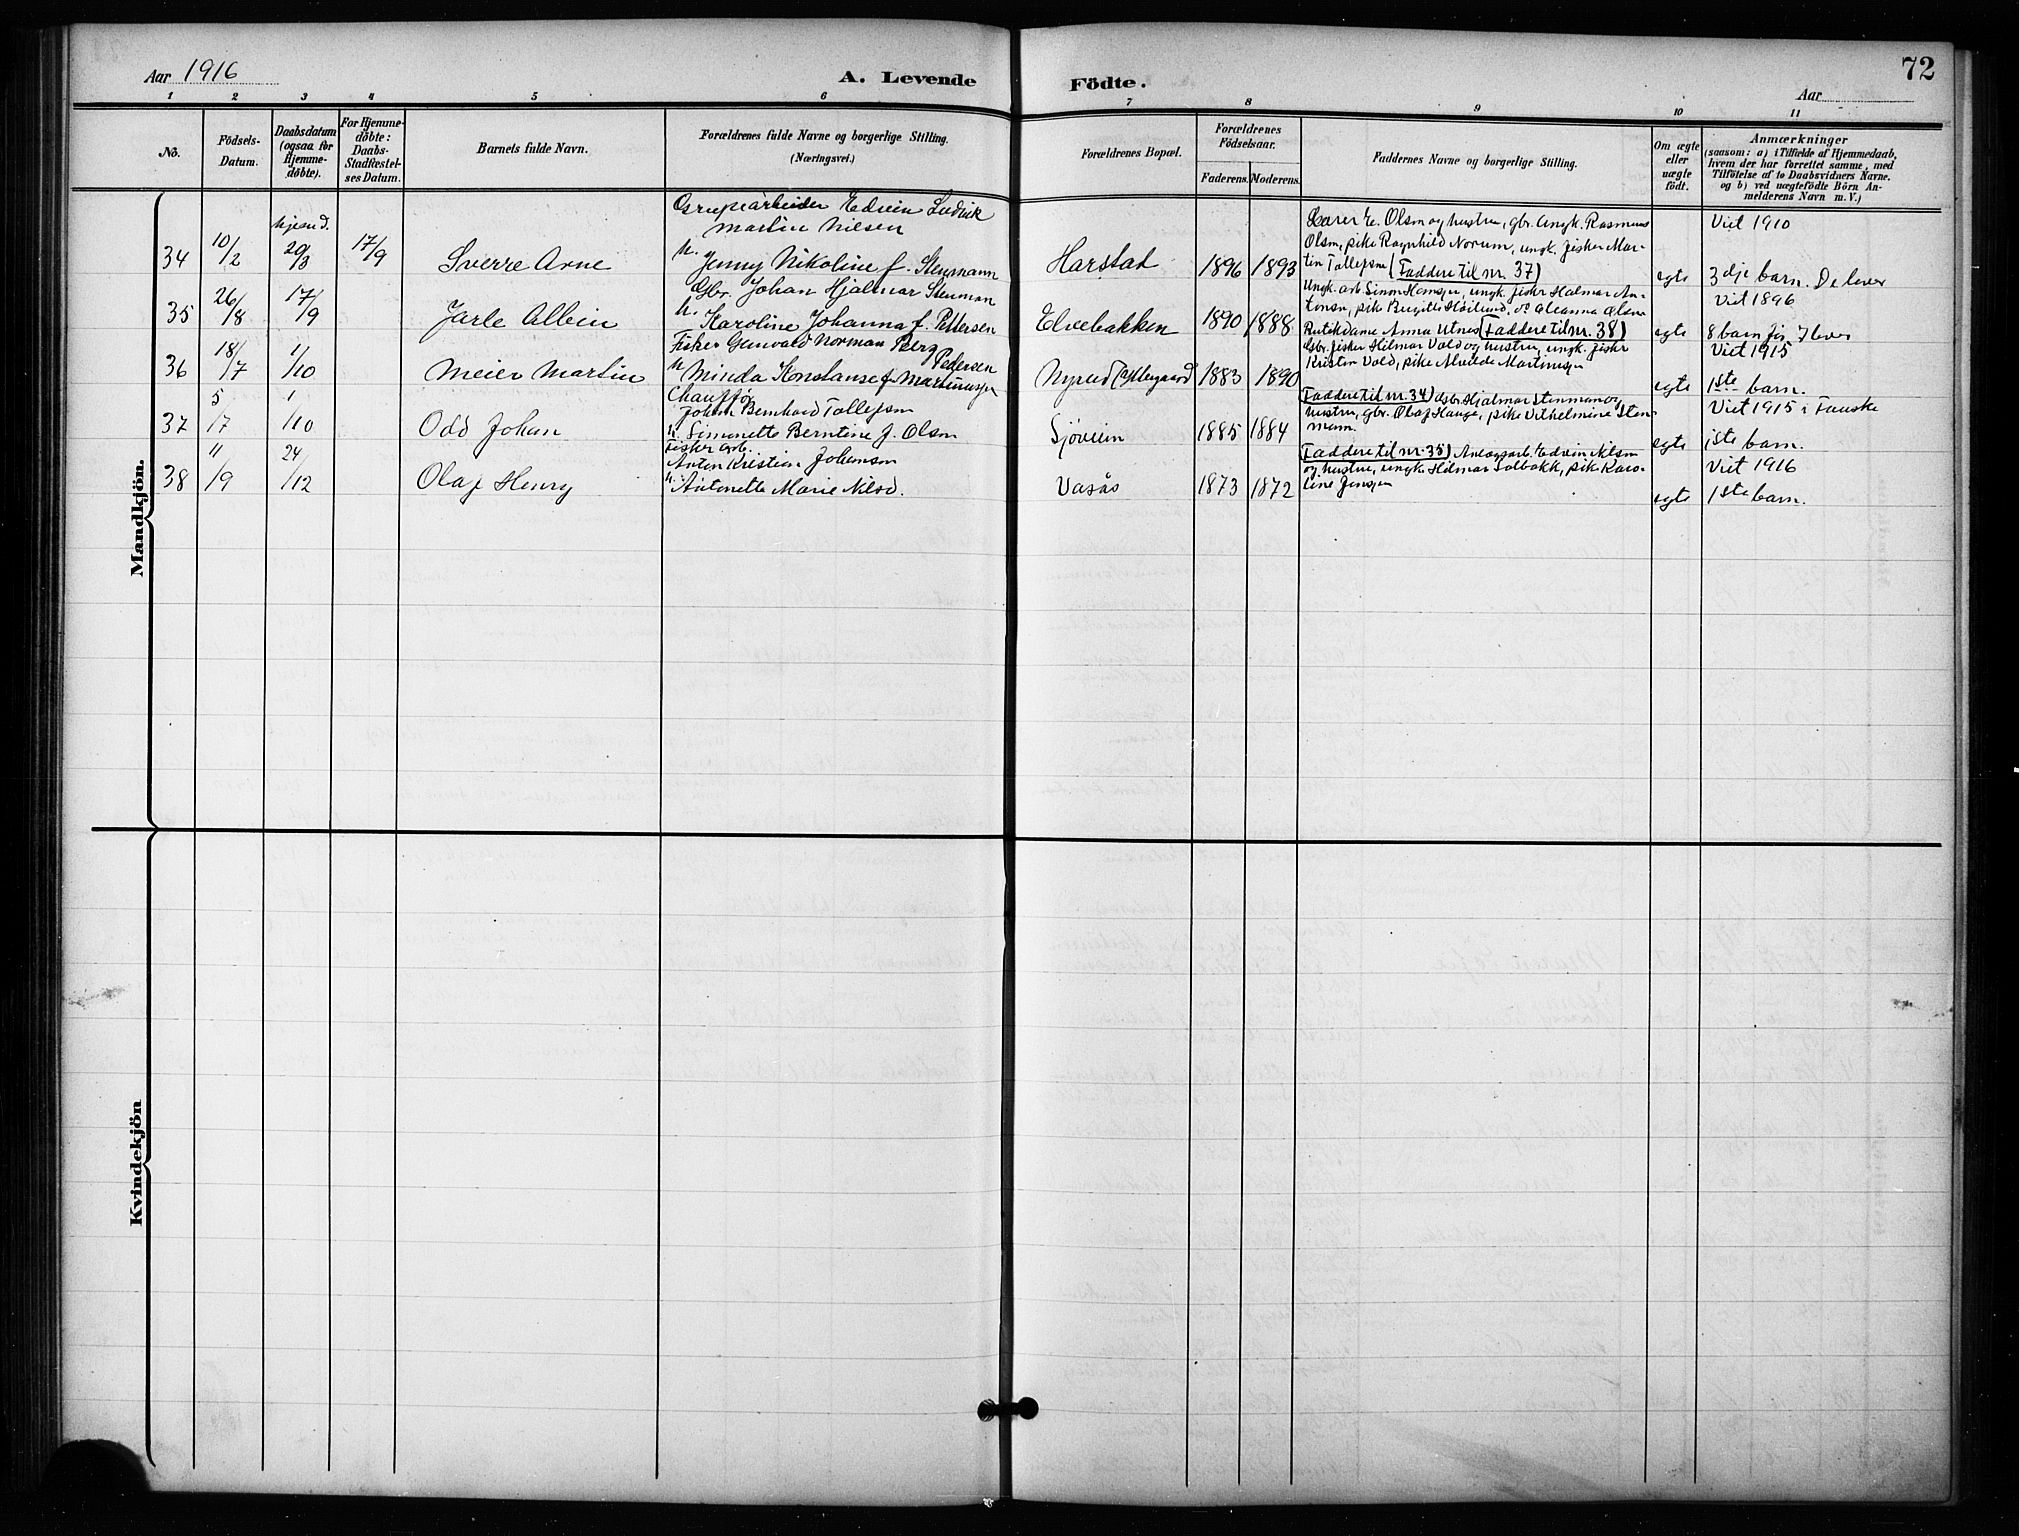 Aar 1916
A. Levende
Födte.
72
Aar
1 2 3 4 5 6 7 8 9 10 11
Nô.
Födsels-
Datum.
Daabsdatum
(ogsaa for
Hjemme-
döbte).
For Hjemme-
döbte:
Daabs-
Stadfæstel-
ses Datum.
Barnets fulde Navn.
Forældrenes fulde Navne og borgerlige Stilling.
(Næringsvei.)
Forældrenes Bopæl.
Forældrenes
Födselsaar.
Faderens. Moderens.
Faddernes Navne og borgerlige Stilling.
Om ægte
eller
uægte
födt.
Anmærkninger
(saasom: a) i Tilfælde af Hjemmedaab,
hvem der har forrettet samme, med
Tilföielse af to Daabsvidners Navne.
og b) ved uægtefödte Börn An-
melderens Navn m.V.)
Mandkjön.
34 10/2 hjemd. 20/3 17/9 Sverre Arne
Grupearbeider Edvin Ludvik
Martin Nilsen
h. Jenny Nikoline f. Stenmann
Harstad 1896 1893
Lærer E. Olsen og hustru, gbr. Rasmus
Olsen, pike Ragnhild Norum, ungk. fisker Mar-
tin Tollefsen (Faddere til nr. 37)
egte
Viet 1910
3dje barn. De lever
35 26/8 17/9 Jarle Albin
Gbr. Johan Hjalmar Stenman
h. Karoline Johanna f. Pettersen
Elvebakken 1890 1888
Ungk. arb. Simon Hansen, ungk. fisker Halmar An-
tonsen, pike Bergitte Höilund, do Oleanna Olsen
Butikdame Anna Utnes (Faddere til nr. 38)
egte
Viet 1896
8 barn för. 7 lever
36 18/7 1/10 Meier Martin
Fisker Gunvald Norman Berg Pedersen
h Minda Konstanse f. Martinussen
Nyrud 1883 1890
Gbr. fisker Hilmar Vold og hustru, ungk. fisker
Kristen Vold, pike Alvilde Martinussen
egte
Viet 1915
1ste barn.
37 5/7 1/10 Odd Johan
Chaufför
Johan Bernhard Tollefsen
h. Simonette Berntine f. Olsen
Sjöveien 1885 1884
(Faddere til nr. 34) Gbr. Hjalmar Stenmann og
hustru, gbr. Olaf Hauge, pike Vilhelmine Sten-
mann.
egte
Viet 1915 i Fauske
1ste barn.
38 11/9 24/12 Olaf Henry
Fisker arb.
Anton Kristian Johansen
h. Antonette Marie Nilsd.
Vasås 1873 1872
(Faddere til nr. 35) Anlægsarb. Edvin Nilsen
og hustru, ungk. Hilmar Solbakk, pike Karo-
line Jensen
egte
Viet 1916
1ste barn.
Kvindekjön